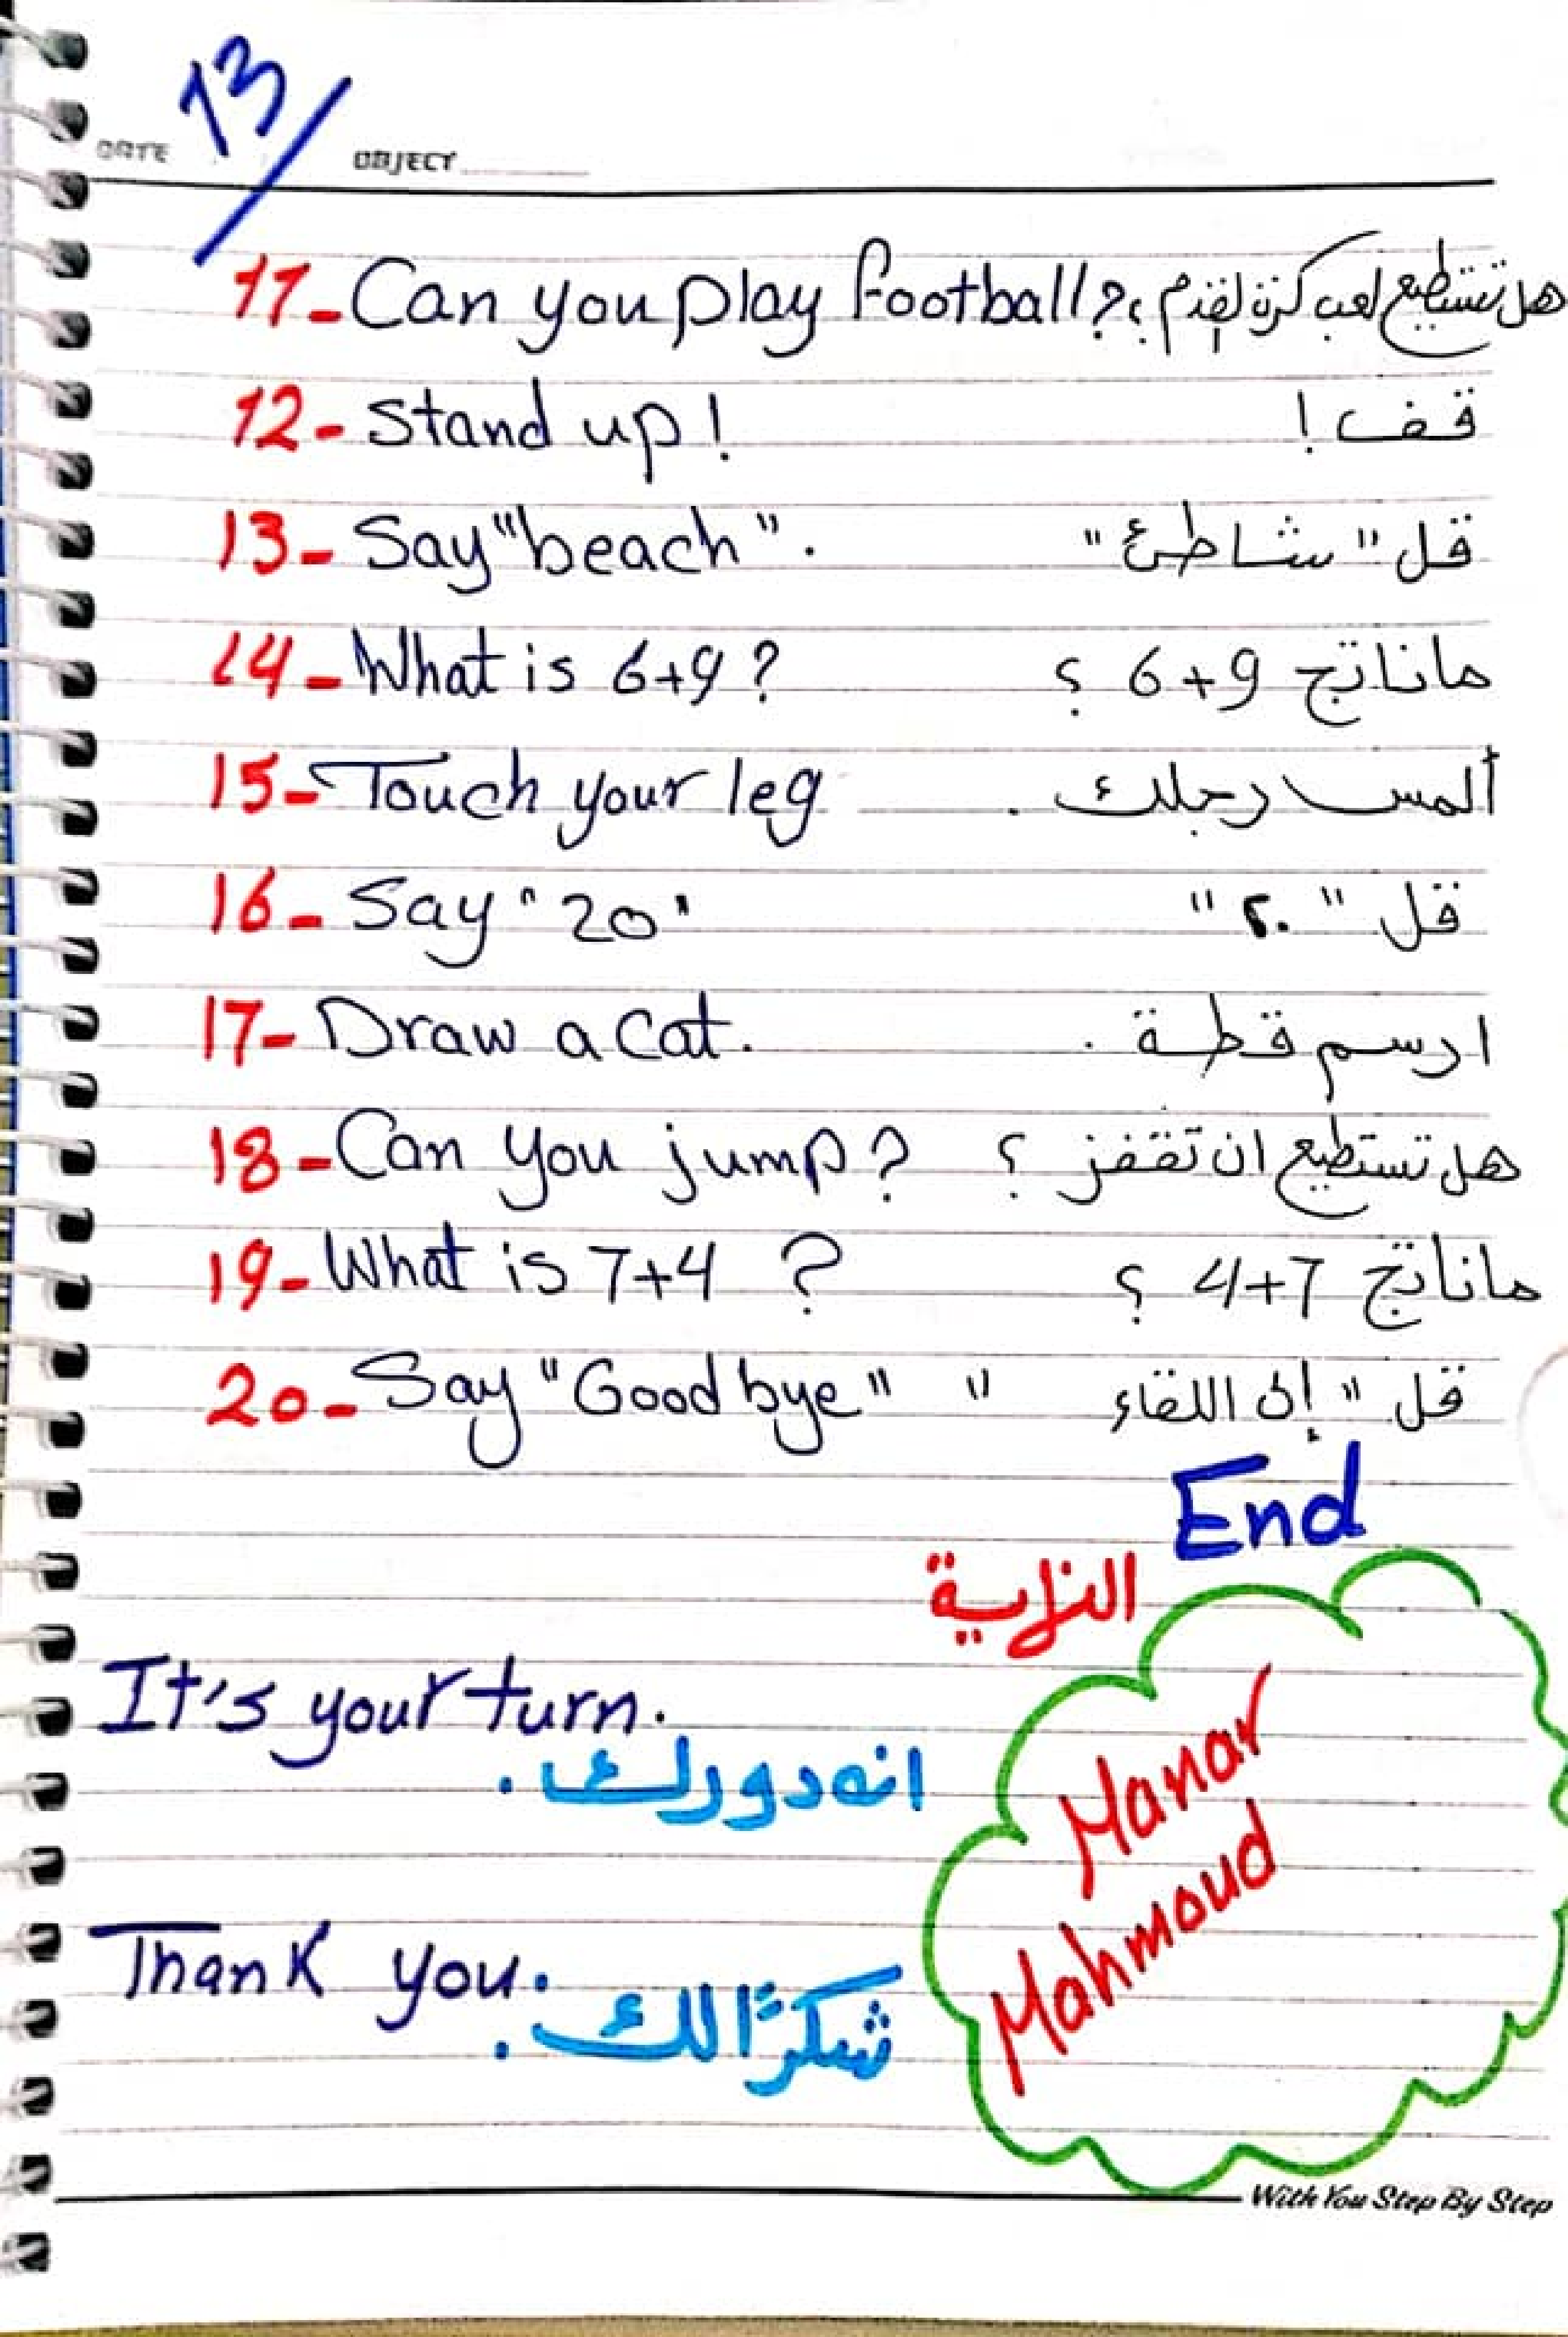 13/
DATE OBJECT
11- Can you play football? هل تستطيع لعب كرة القدم؟
12- Stand up! قف!
13- Say "beach". قل "شاطئ"
14- What is 6+9? ماناتج 9+6 ؟
15- Touch your leg ألمس رجلك .
16- Say "20" قل "٢٠"
17- Draw a cat. ارسم قطة .
18- Can you jump? هل تستطيع ان تقفز ؟
19- What is 7+4 ? ماناتج 7+4 ؟
20- Say "Good bye" قل "إلى اللقاء "
End
النهاية
It's your turn.
انه دورك .
Manar
Mahmoud
Thank you.
شكرًا لك .
With You Step By Step